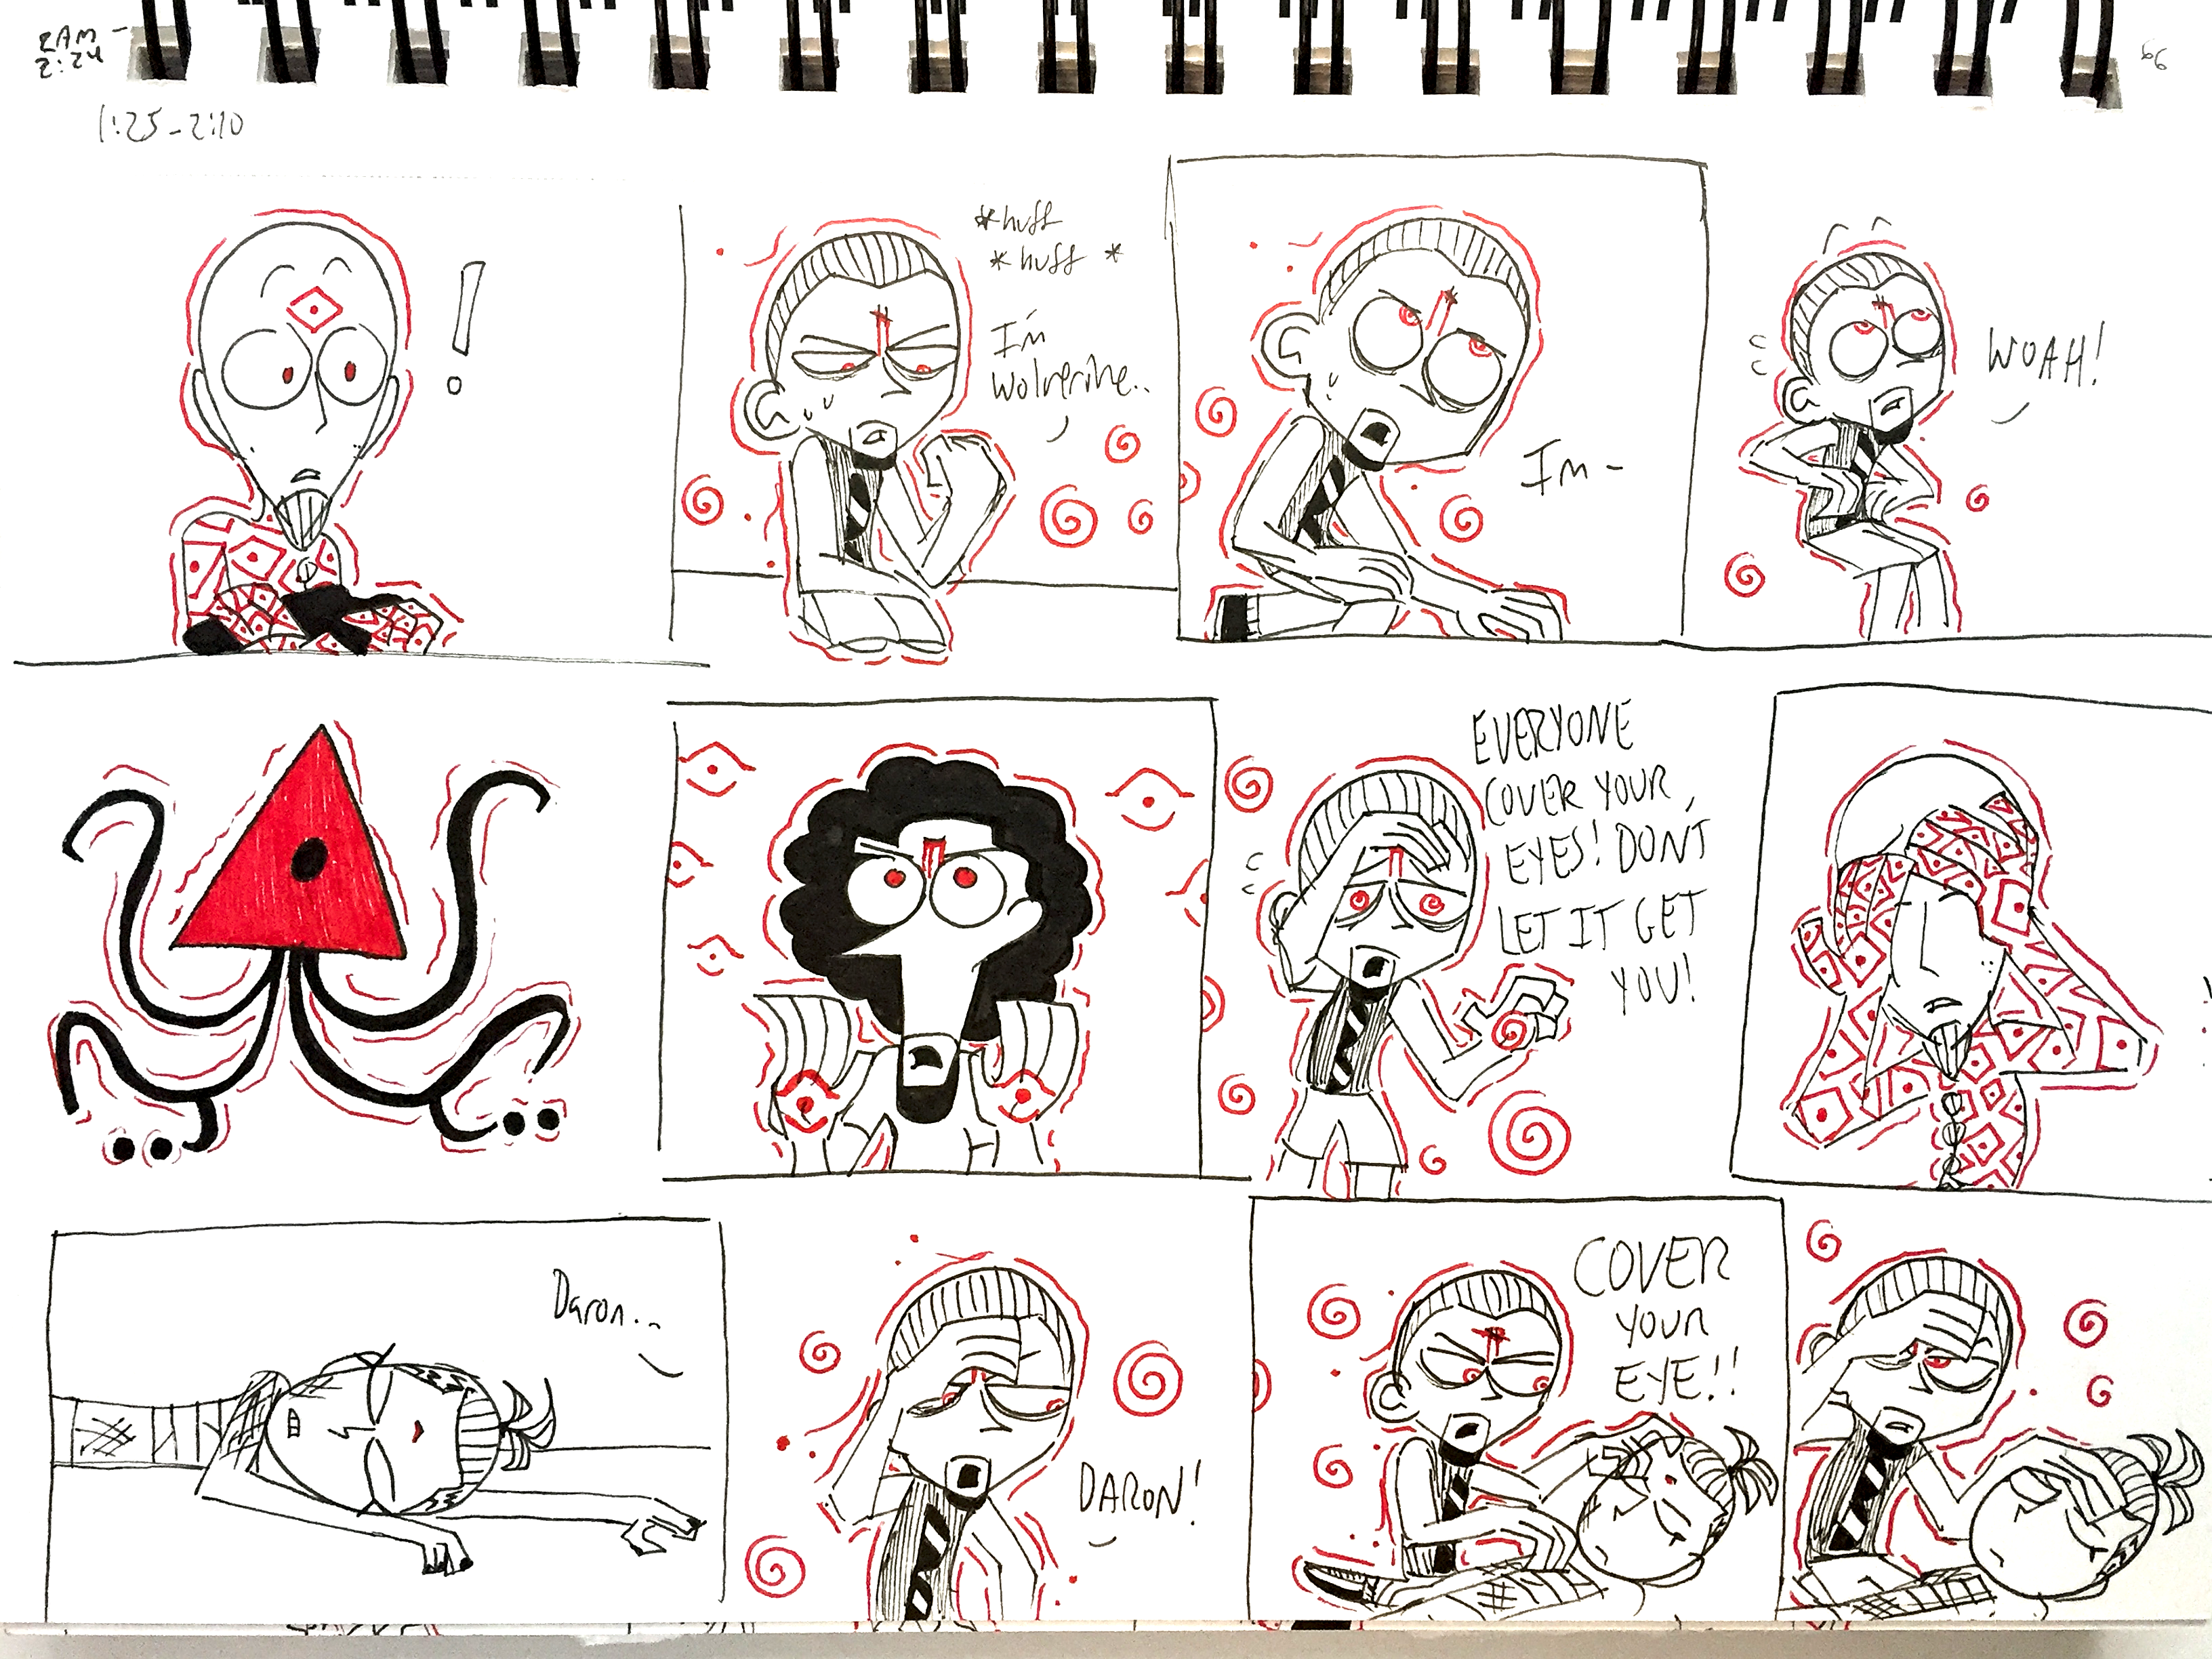 2AM -
2:24
66
1:25-2:10
!
*huff
*huff*
I'm
wolverine..
Im-
WOAH!
EVERYONE
COVER YOUR
EYES! DON'T
LET IT GET
YOU!
Daron...
DARON!
COVER
YOUR
EYE!!